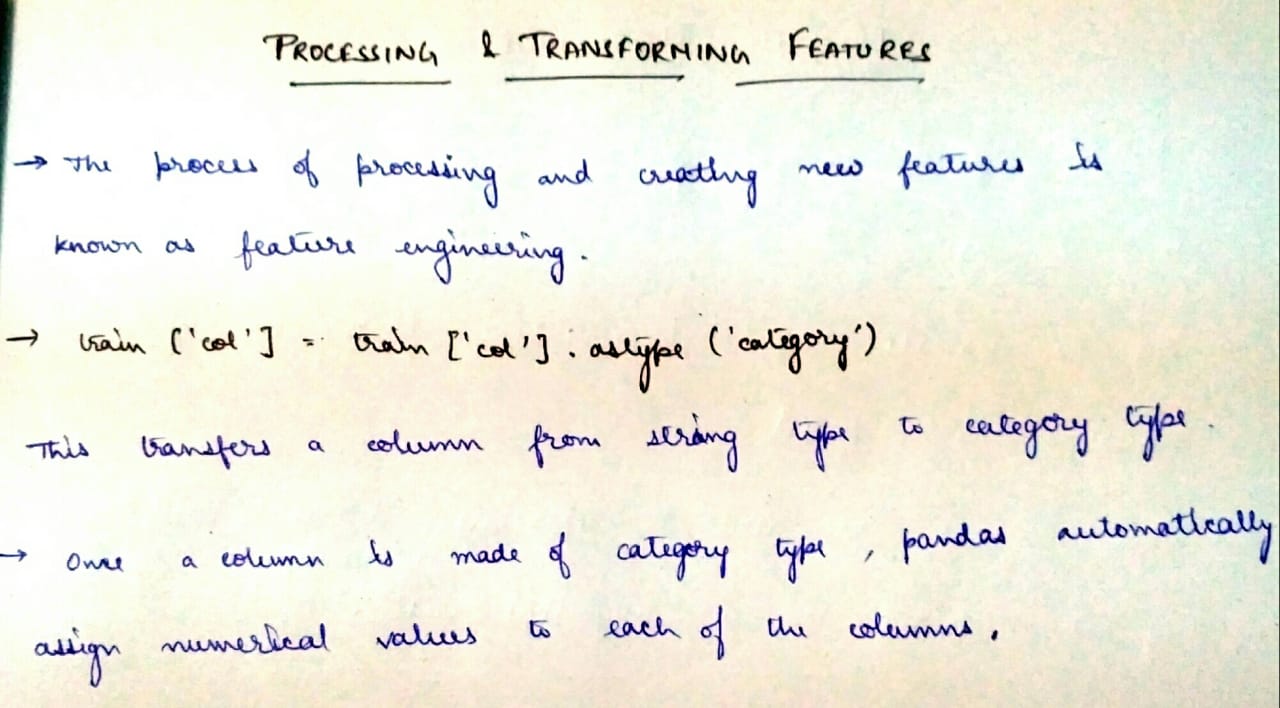 PROCESSING & TRANSFORMING FEATURES
→ The process of processing and creating new features is
known as feature engineering.
→ train ['col'] = train ['col'].astype ('category')
This transfers a column from string type to category type.
→ Once a column is made of category type, pandas automatically
assign numerical values to each of the columns.